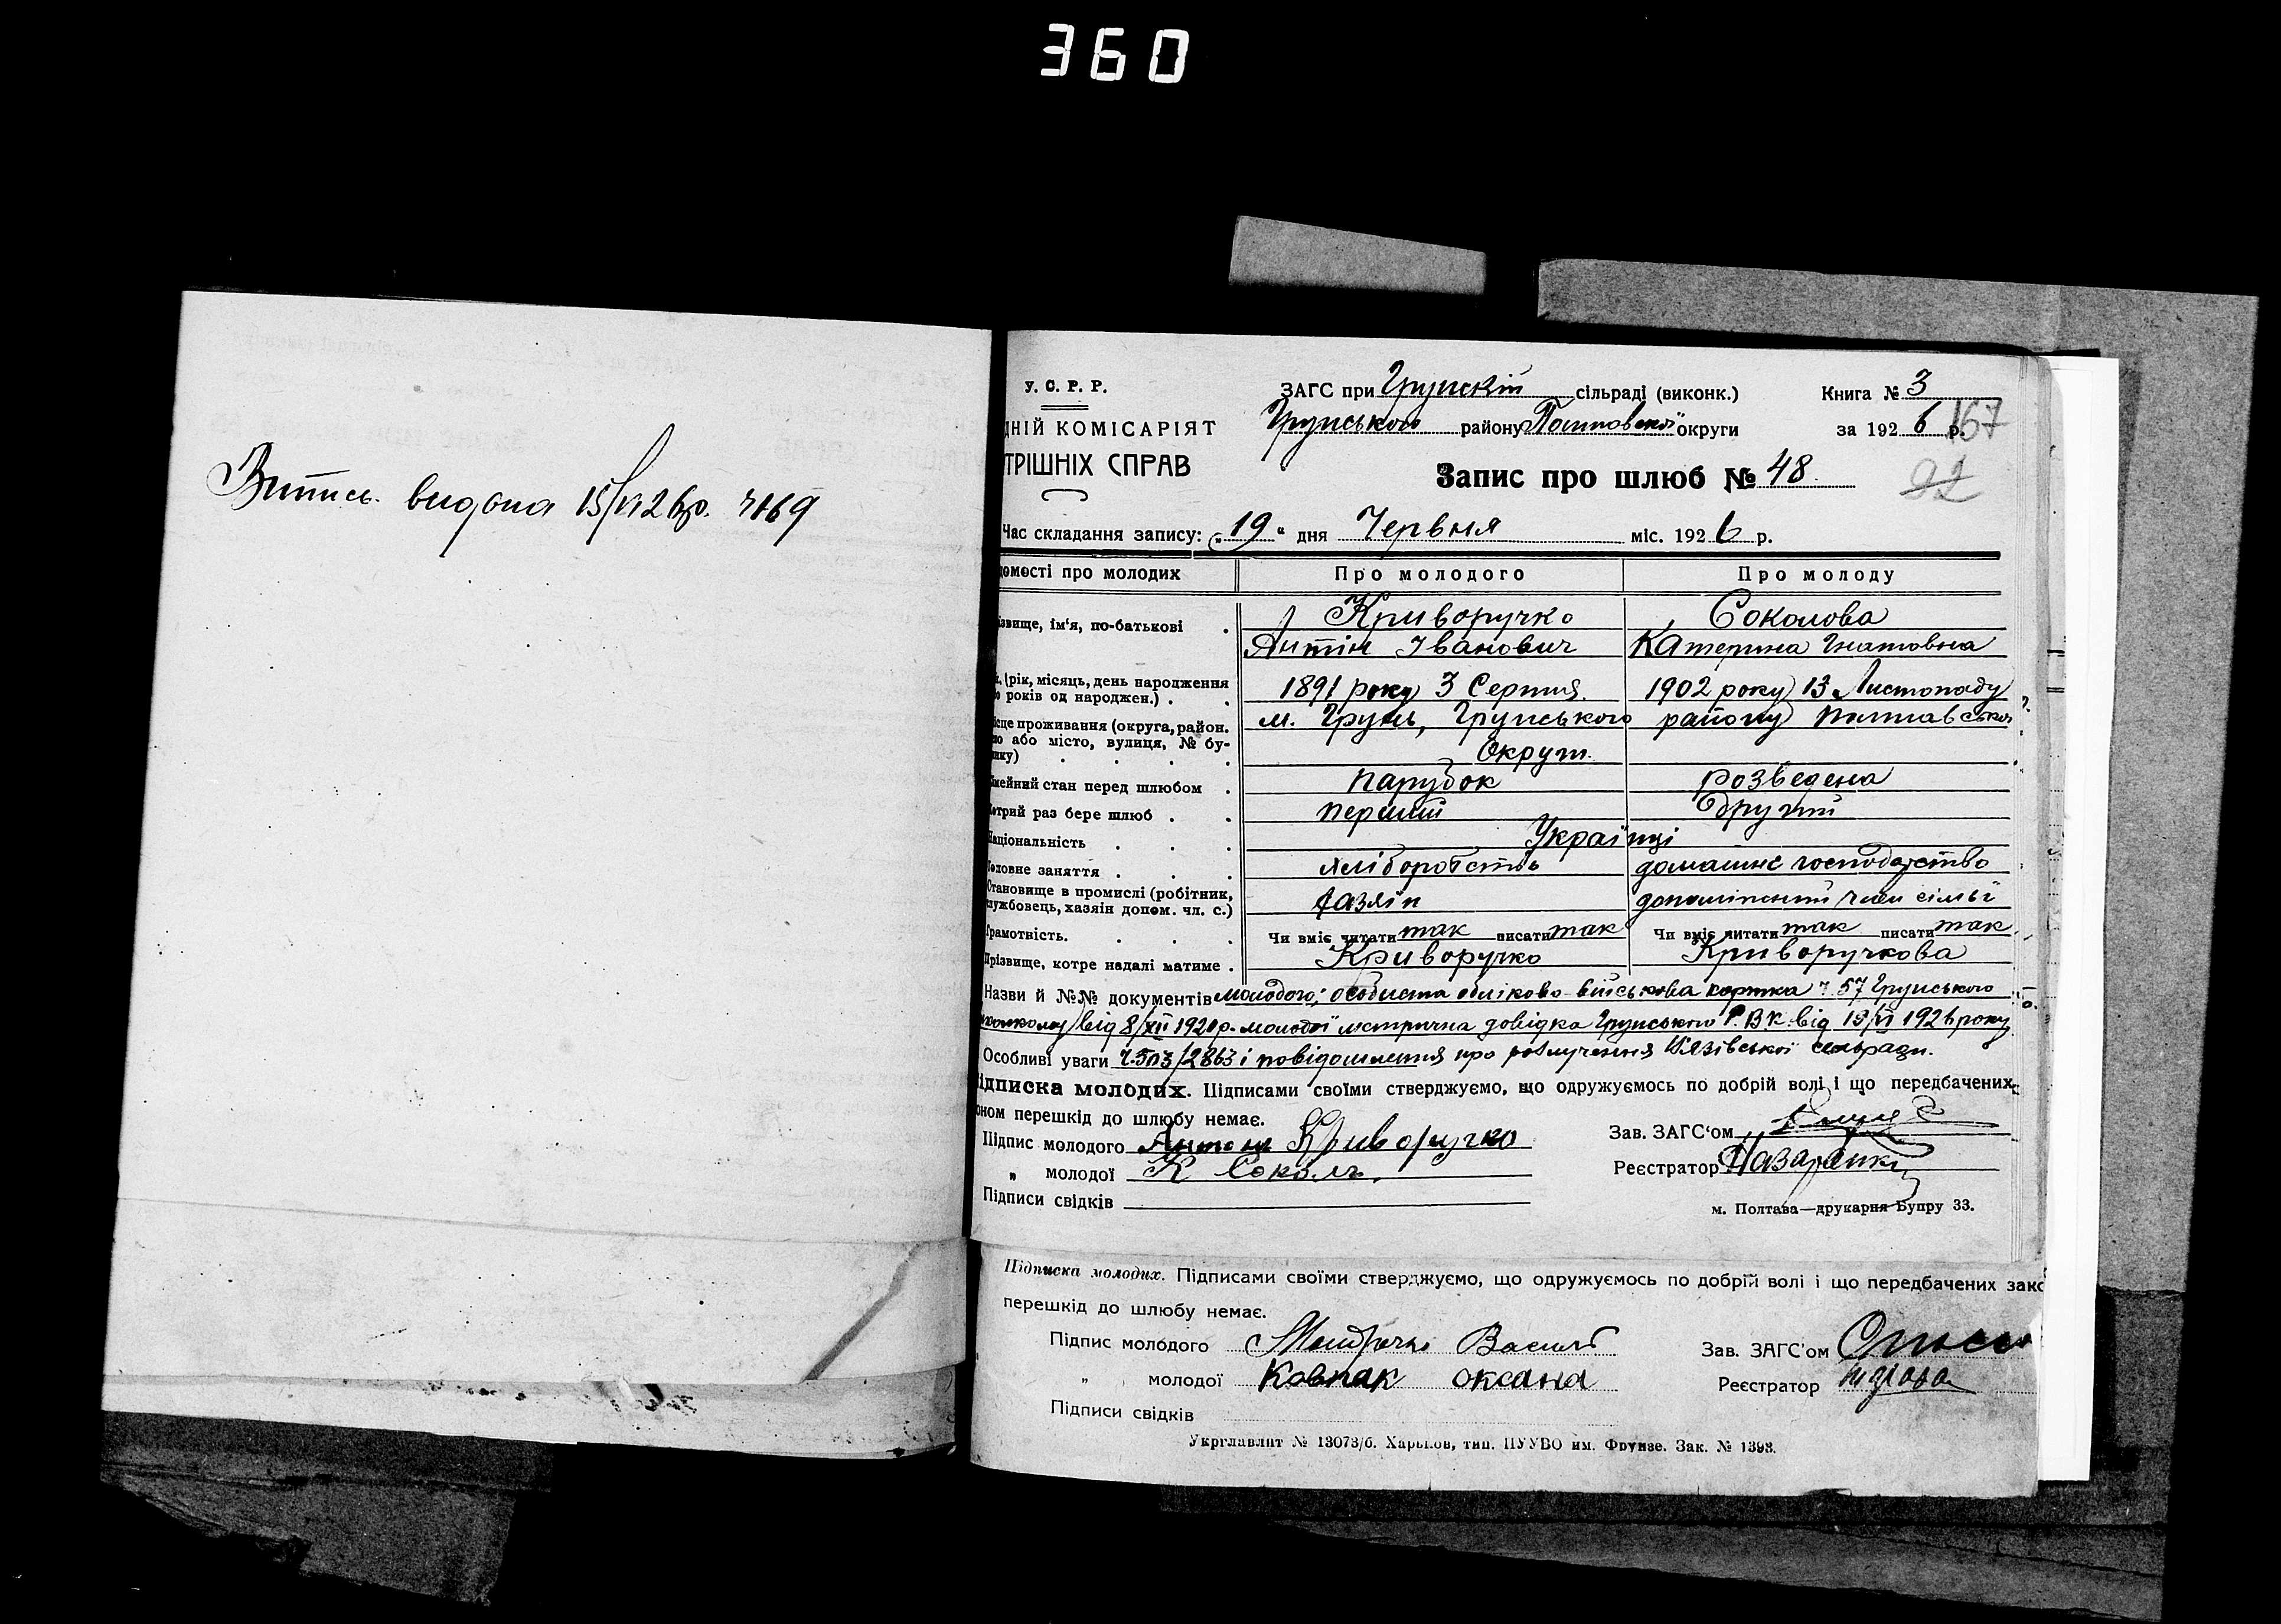 360
Витись видана 15/VI 26р. №169
У. С. Р. Р.
ДНІЙ КОМІСАРІЯТ
ТРІШНІХ СПРАВ
ЗАГС при Грунскій сільраді (виконк.)
Грунського району Полтавської округи
Книга № 3
за 1926 р.
167
92
Запис про шлюб № 48
Час складання запису: „19“ дня Червня міс. 1926 р.
домості про молодих Про молодого Про молоду
ізвище, ім‘я, по-батькові . Криворучко Соколова
Антін Іванович Катерина Гнатовна
к. (рік, місяць, день народження
о років од народжен.) . . 1891 року 3 Серпня 1902 року 13 Листопаду
ісце проживання (округа, район.
ло або місто, вулиця, № бу-
инку) . . . . м. Грунь, Грунського району Полтавської
Округи
імейний стан перед шлюбом . парубок розведена
котрий раз бере шлюб . . перший другий
Національність . . . Українці
Головне заняття . . . хліборобство домашнє господарство
Становище в промислі (робітник,
службовець, хазяін допом. чл. с.) хазяін допоміжний член сімьї
Грамотність. . . . Чи вміє читати так писати так Чи вміє читати так писати так
Прізвище, котре надалі матиме . Криворучко Криворучкова
Назви й №№ документів молодого: особиста обліково-військова картка ч. 57 Грунського
від 8/XII 192 р. молодої метрична довідка Грунського Р.В.К. від 19/VI 1926 року
Особливі уваги ч. /2863 і повідомлення про розлучення сельради.
Підписка молодих. Підписами своїми стверджуємо, що одружуємось по добрій волі і що передбачених
оном перешкід до шлюбу немає.
Підпис молодого Антон Криворучко
„ молодої К Соколь.
Підписи свідків
Зав. ЗАГС‘ом
Реєстратор Назаренко
м. Полтава—друкарня Бупру 33.
Підписка молодих. Підписами своїми стверджуємо, що одружуємось по добрій волі і що передбачених зако
перешкід до шлюбу немає.
Підпис молодого Василь
„ молодої Ковпак Оксана
Підписи свідків
Зав. ЗАГС'ом
Реєстратор
Укрглавлит № 13073/б. Харьков, тип. ПУУВО им. Фрунзе. Зак. № 1398.